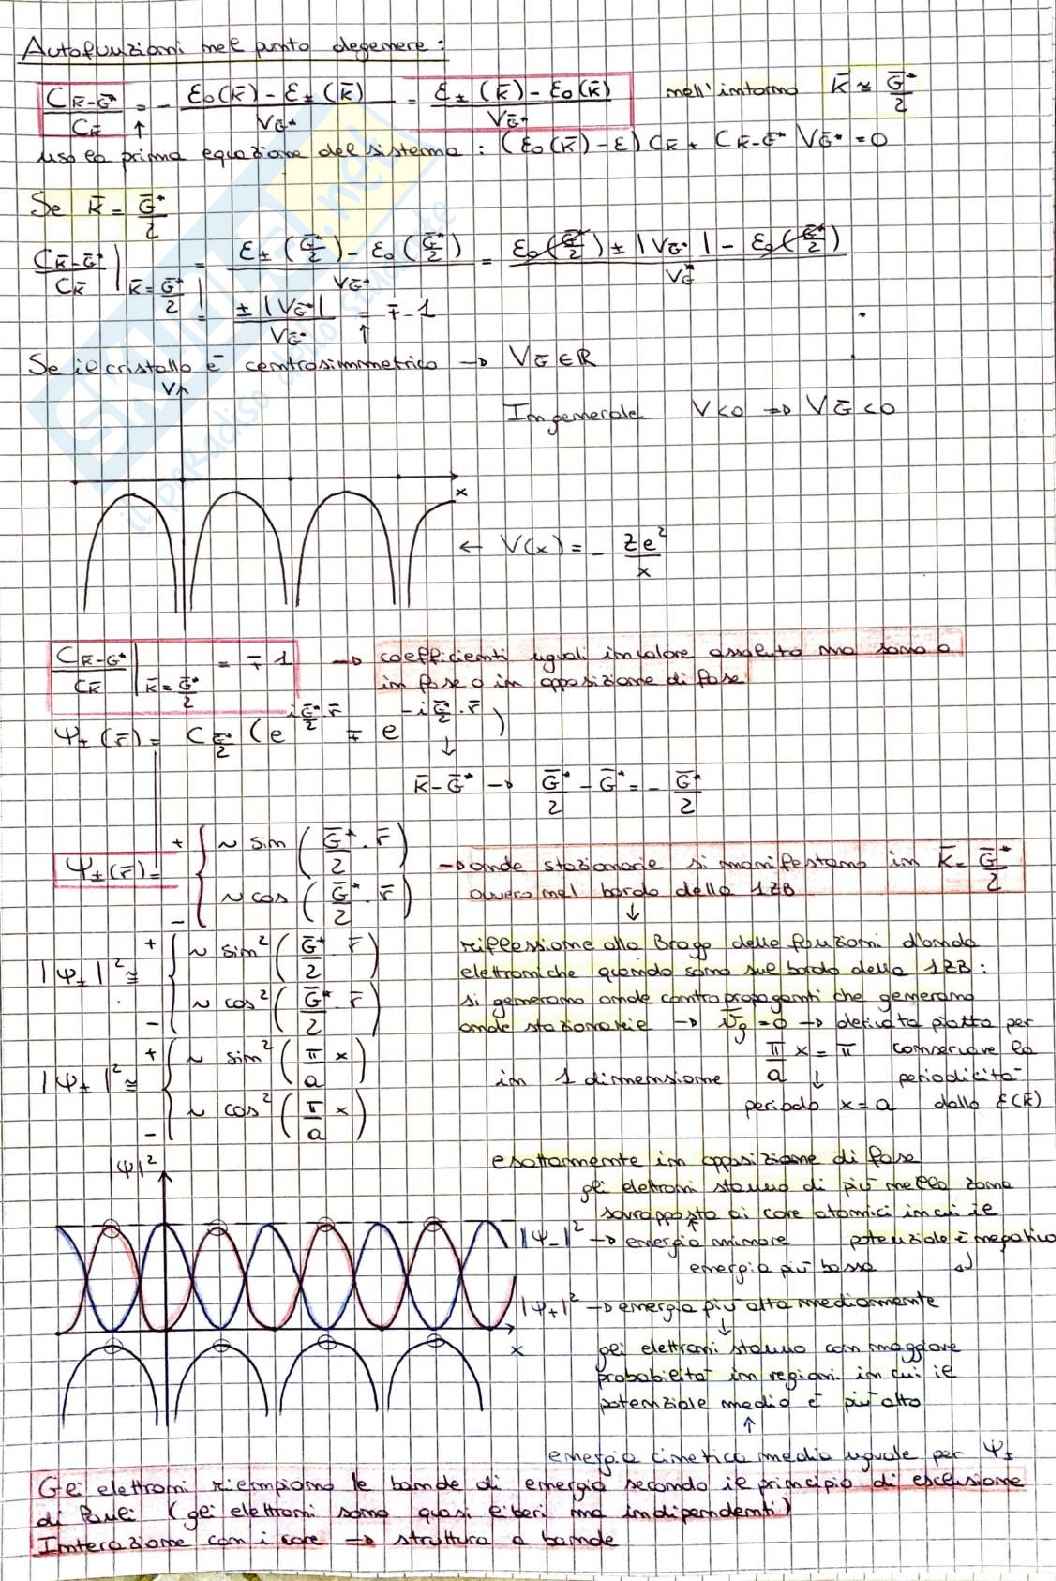 Autofunzioni nel punto degenere:
C_{k̄-Ḡ*}/C_k̄ = - (ε₀(k̄) - ε±(k̄))/V_Ḡ* = (ε±(k̄) - ε₀(k̄))/V_Ḡ* nell'intorno k̄ ≈ Ḡ*/2
uso la prima equazione del sistema: (ε₀(k̄) - ε) C_k̄ + C_{k̄-Ḡ*} V_Ḡ* = 0
Se k̄ = Ḡ*/2
C_{k̄-Ḡ*}/C_k̄ |_{k̄=Ḡ*/2} = (ε±(Ḡ*/2) - ε₀(Ḡ*/2))/V_Ḡ* = (ε₀(Ḡ*/2) ± |V_Ḡ*| - ε₀(Ḡ*/2))/V_Ḡ*
= ± |V_Ḡ*|/V_Ḡ* = ∓ 1
Se il cristallo è centrosimmetrico → V_Ḡ ∈ ℝ
V
In generale V<0 ⇒ V_Ḡ<0
x
← V(x) = - Ze²/x
C_{k̄-Ḡ*}/C_k̄ |_{k̄=Ḡ*/2} = ∓ 1 → coefficienti uguali in valore assoluto ma sono o
in fase o in opposizione di fase
Ψ±(r̄) = C_{Ḡ*/2} (e^{i Ḡ*/2·r̄} ∓ e^{-i Ḡ*/2·r̄})
↓
k̄-Ḡ* → Ḡ*/2 - Ḡ* = - Ḡ*/2
+ ~ sin (Ḡ*/2 · r̄)
Ψ±(r̄) = → onde stazionarie si manifestano in k̄ = Ḡ*/2
- ~ cos (Ḡ*/2 · r̄) ovvero nel bordo della 1ZB
↓
+ ~ sin² (Ḡ*/2 · r̄) riflessione alla Bragg delle funzioni d'onda
|Ψ±|² ≅ elettroniche quando sono sul bordo della 1ZB:
- ~ cos² (Ḡ*/2 · r̄) si generano onde contropropaganti che generano
onde stazionarie → v̄g = 0 → derivata piatta per
+ ~ sin² (π/a x) π/a x = π conservare la
|Ψ±|² ≅ in 1 dimensione ↓ periodicità
- ~ cos² (π/a x) periodo x = a dello ε(k̄)
|Ψ|²
esattamente in opposizione di fase
gli elettroni stanno di più nella zona
sovrapposta ai core atomici in cui il
|Ψ₋|² → energia minore potenziale è negativo
energia più bassa
|Ψ₊|² → energia più alta mediamente
↓
x gli elettroni stanno con maggiore
probabilità in regioni in cui il
potenziale medio è più alto
↑
energia cinetica media uguale per Ψ±
Gli elettroni riempiono le bande di energia secondo il principio di esclusione
di Pauli (gli elettroni sono quasi liberi ma indipendenti)
Interazione con i core → struttura a bande